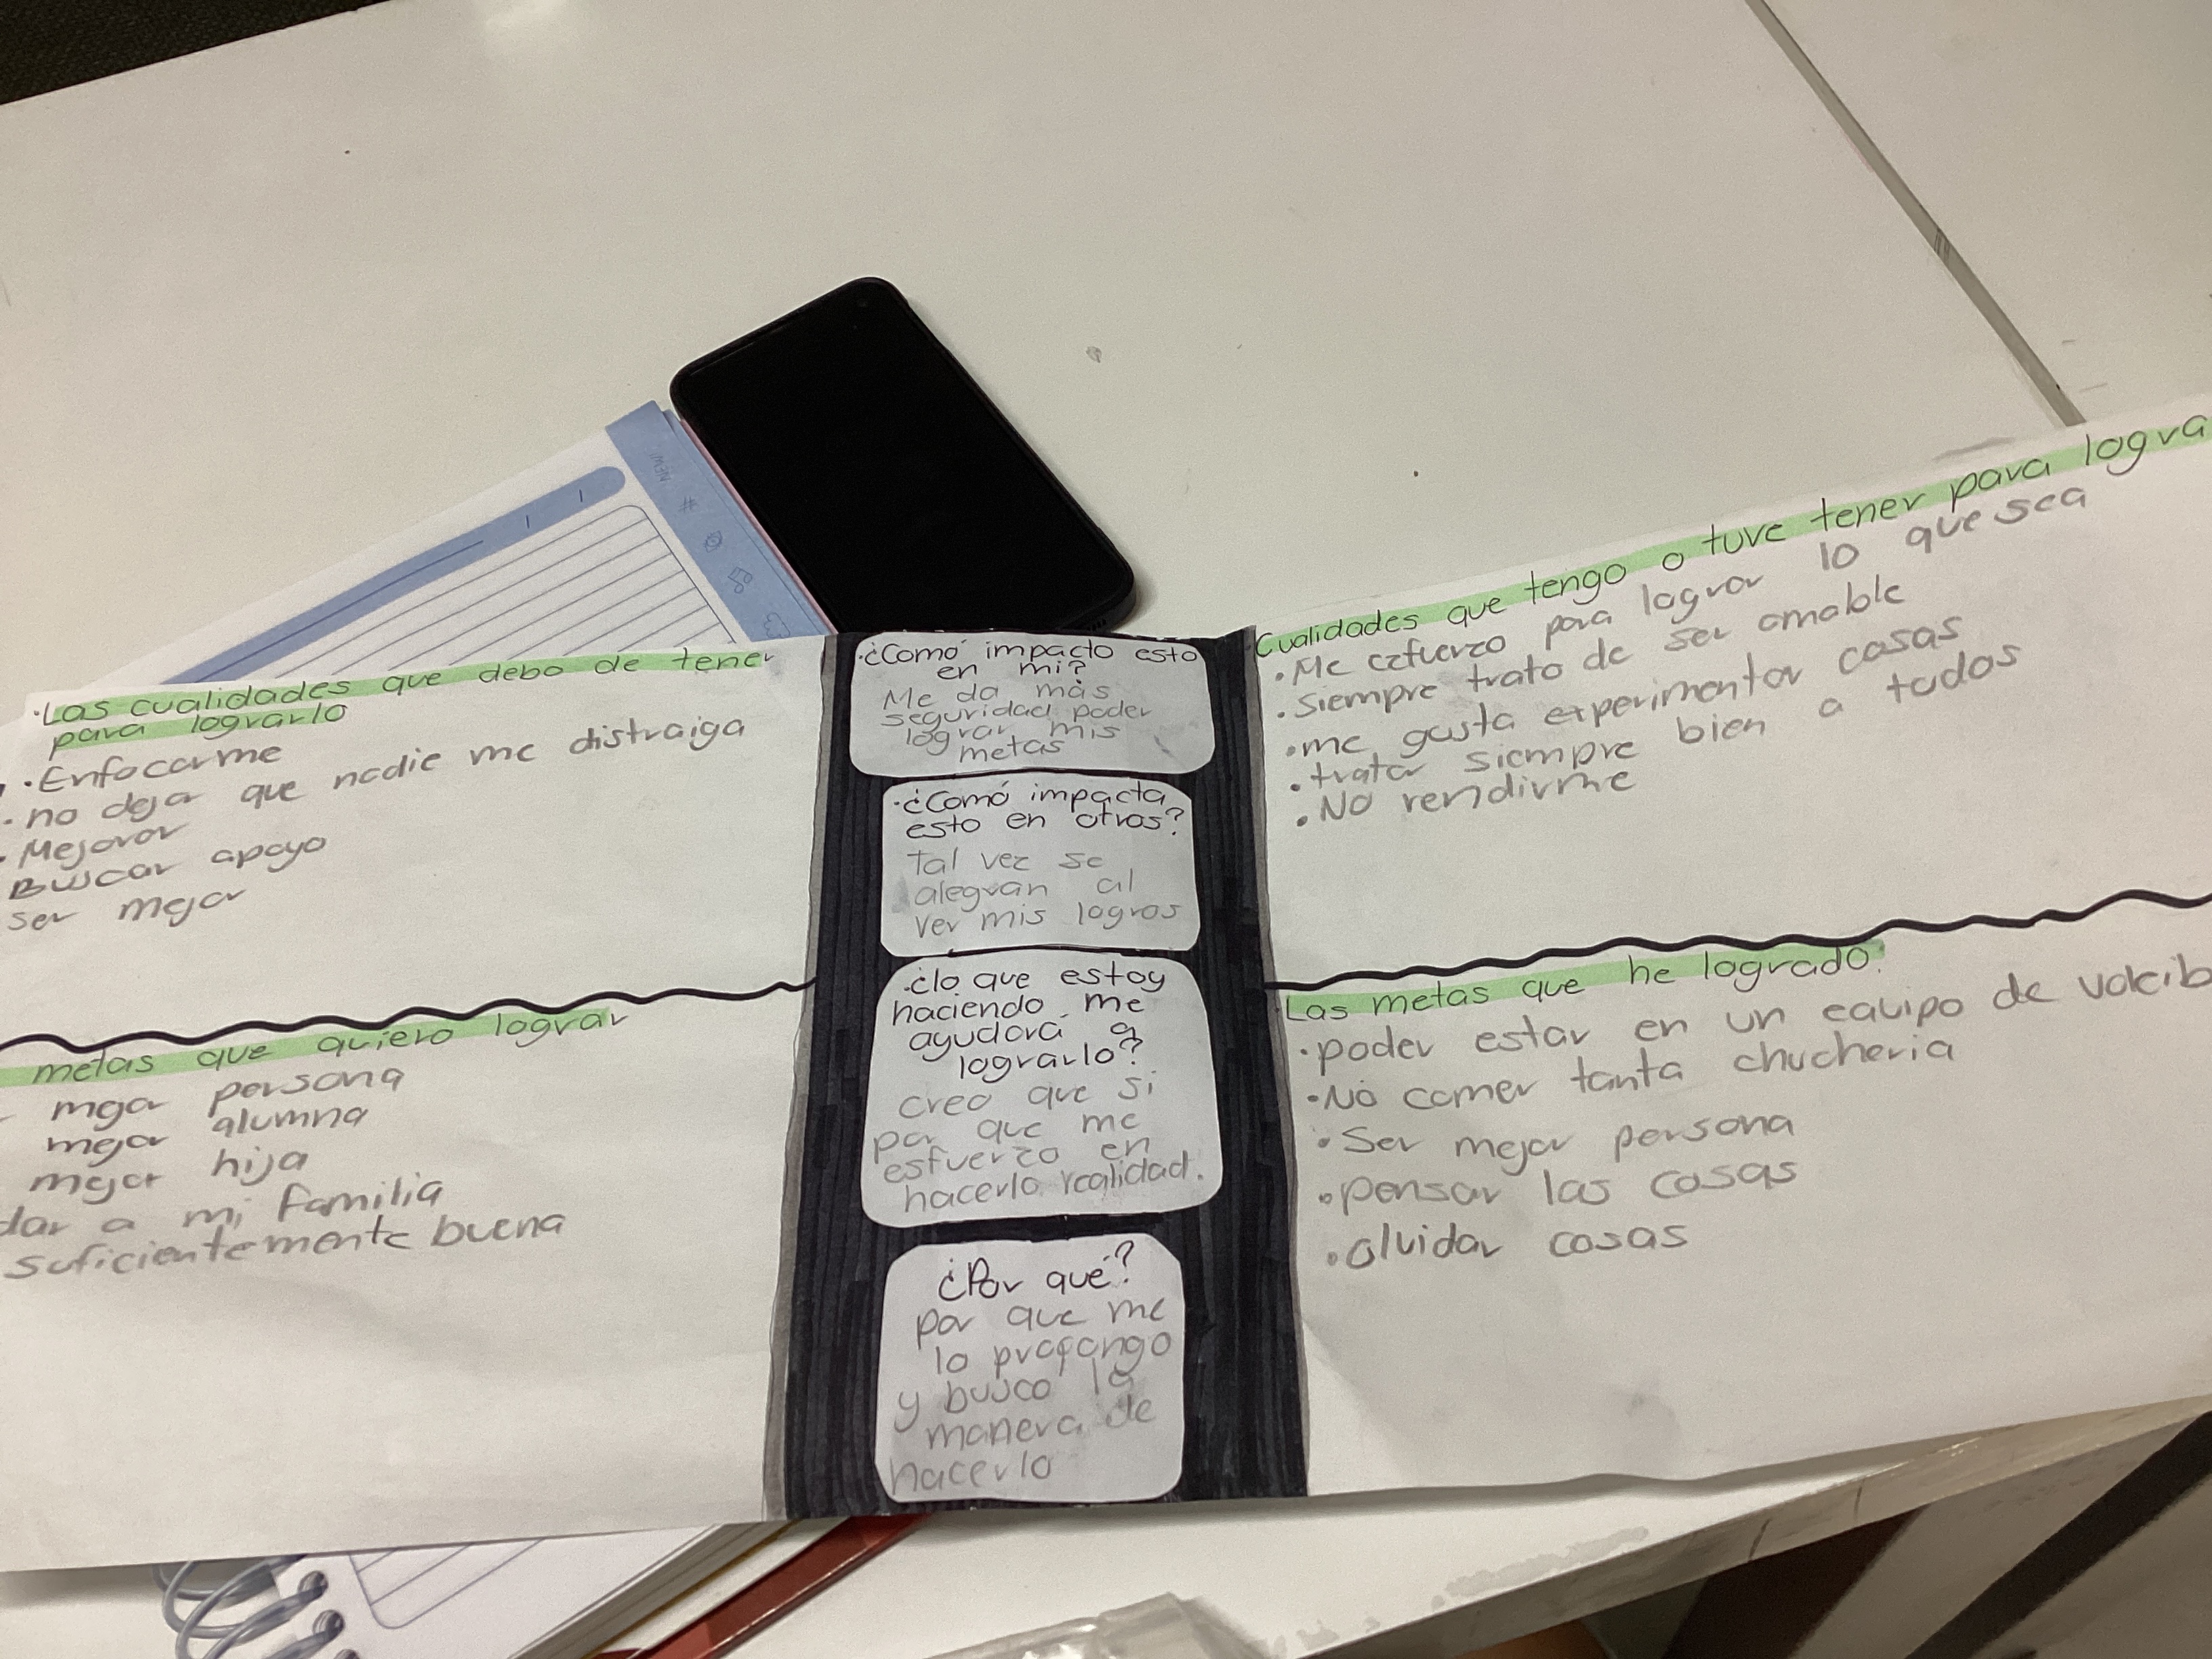 NEW!
#
·Las cualidades que debo de tener
para lograrlo
·Enfocarme
·no dejar que nadie me distraiga
·Mejorar
Buscar apoyo
ser mejor
metas que quiero lograr
mejor persona
mejor alumna
mejor hija
dar a mi familia
suficientemente buena
·¿Comó impacto esto
en mi?
Me da más
seguridad poder
lograr mis
metas
·¿Comó impacta
esto en otros?
Tal vez se
alegran al
ver mis logros
·¿lo que estoy
haciendo me
ayudará a
lograrlo?
creo que si
por que me
esfuerzo en
hacerlo realidad.
¿Por qué?
por que me
lo propongo
y busco la
manera de
hacerlo
Cualidades que tengo o tuve tener para logra
·Me ezfuerzo para lograr lo que sea
·siempre trato de ser amable
·me gusta experimentar cosas
·tratar siempre bien a todos
·No rendirme
Las metas que he logrado:
·poder estar en un equipo de voleib
·No comer tanta chucheria
·Ser mejor persona
·pensar las cosas
·olvidar cosas